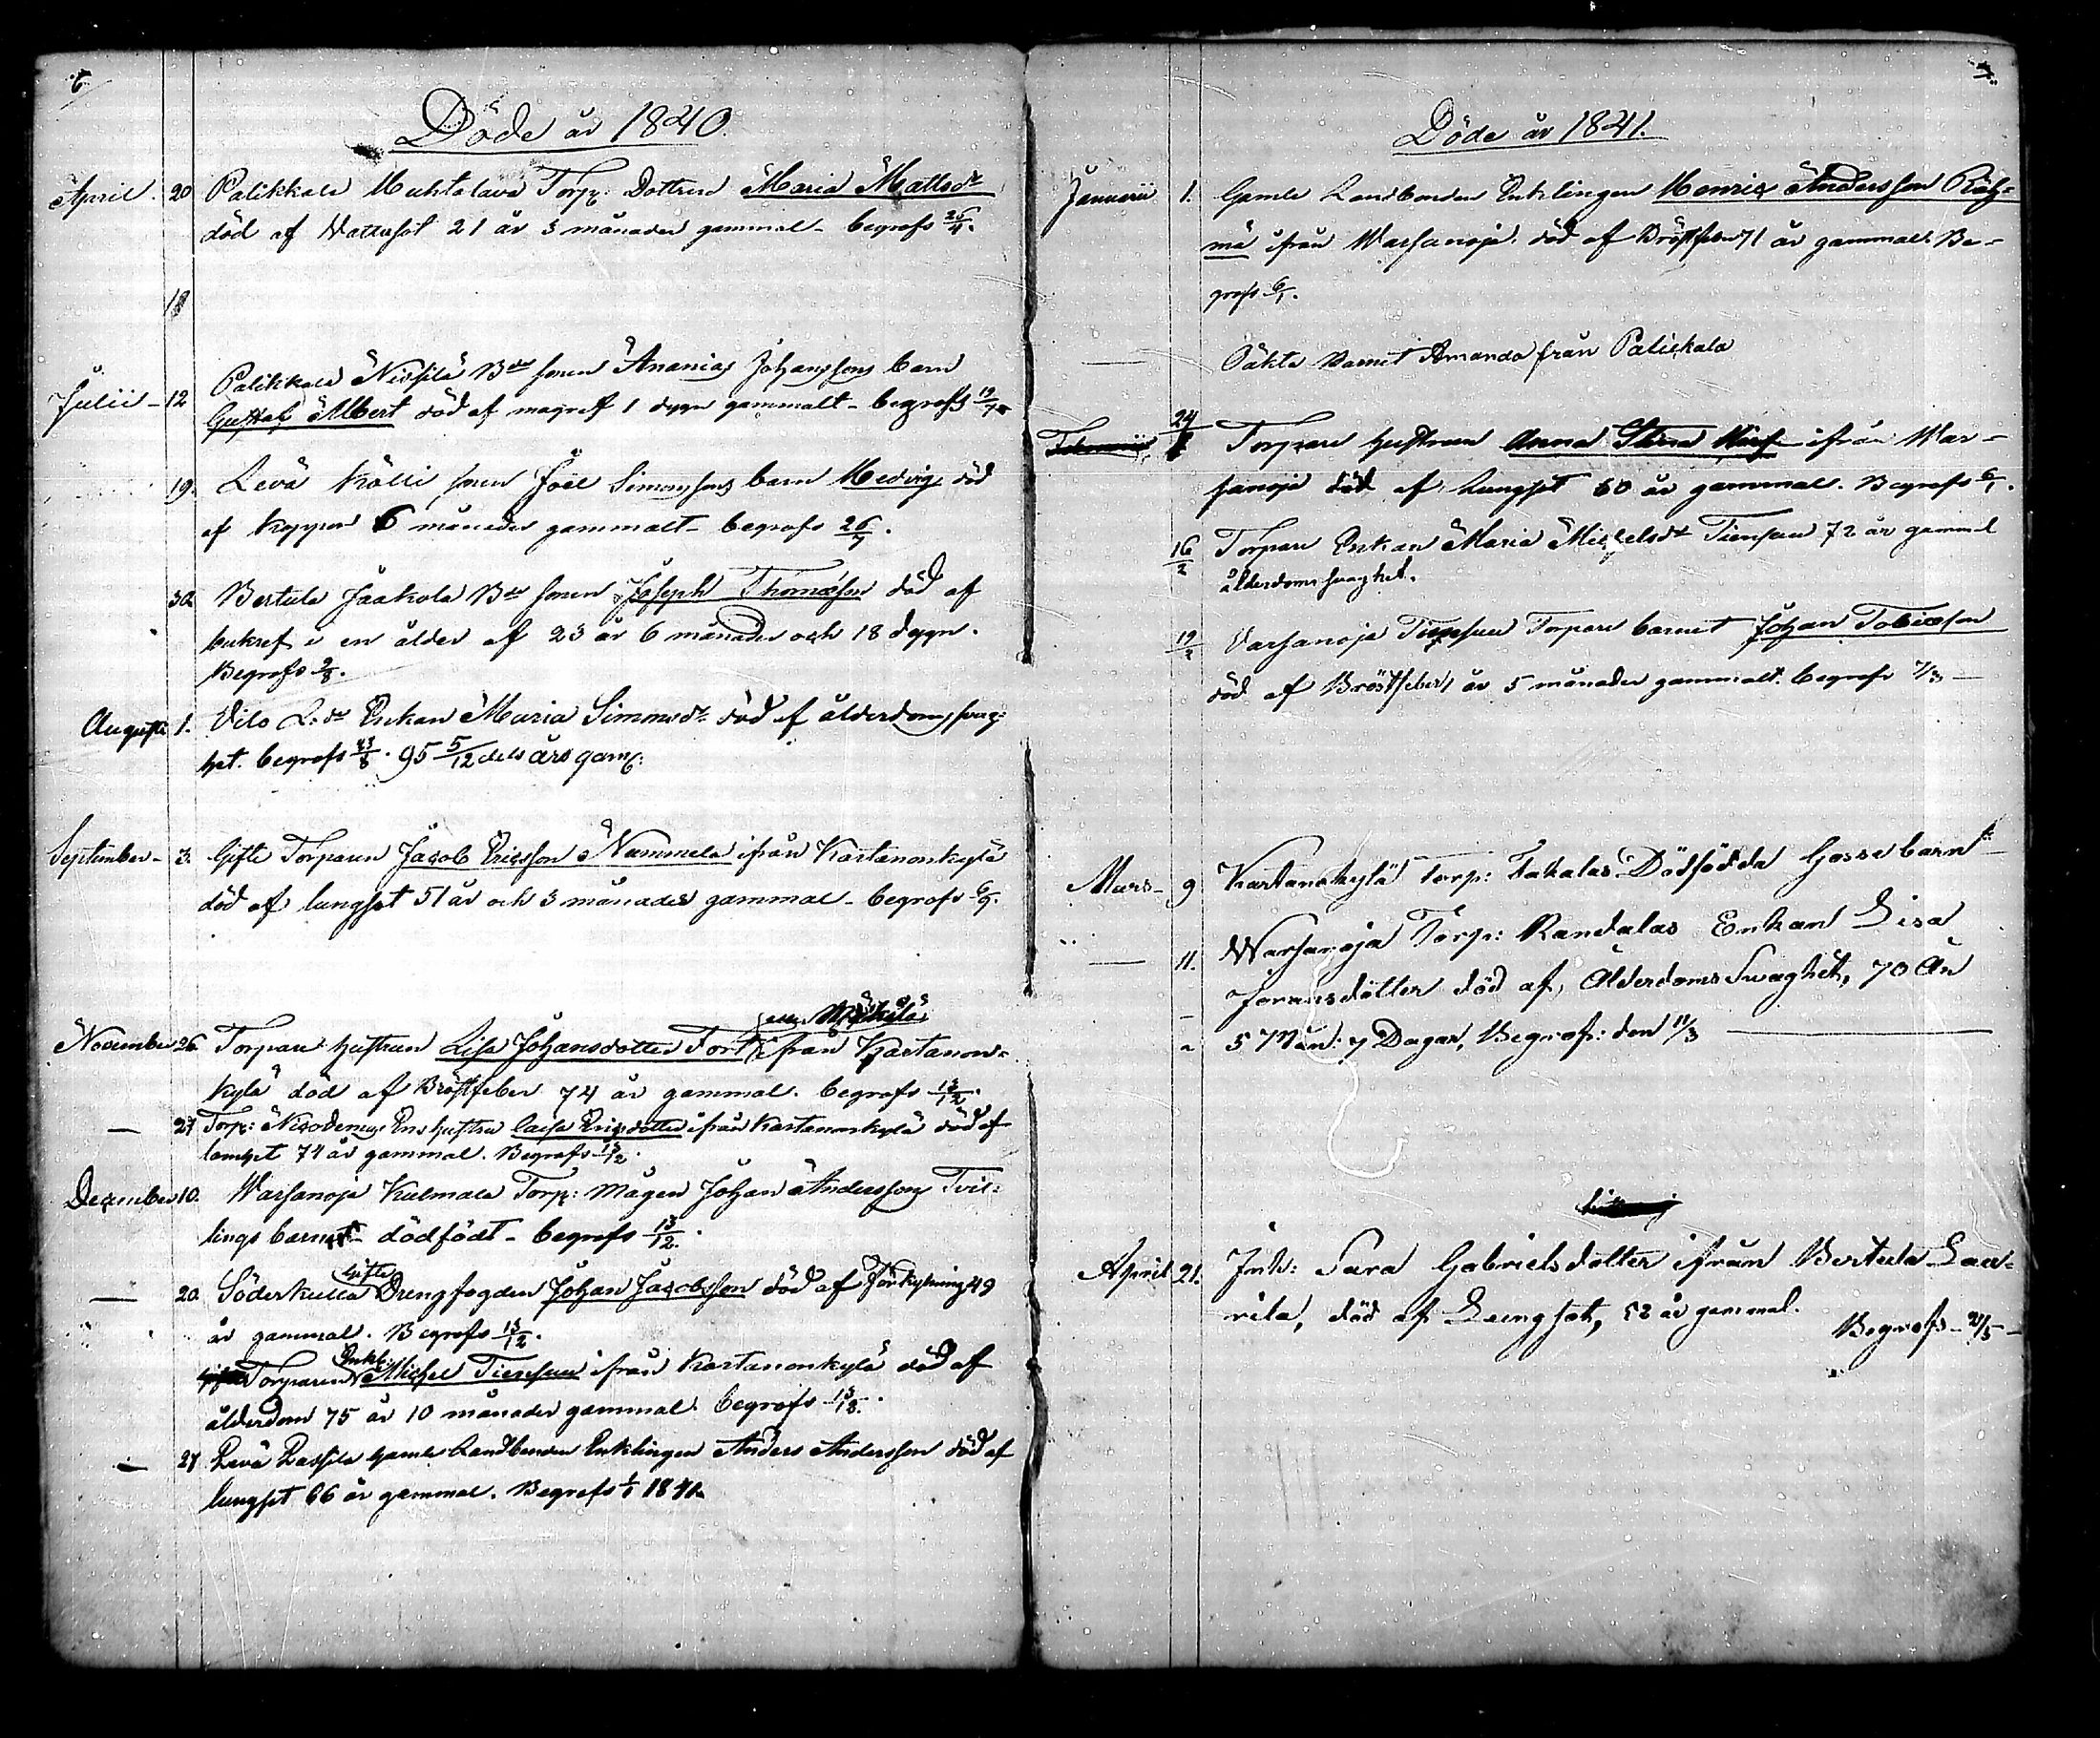 6
Döde år 1840.
April. 20 Palikkala Muhtalava Torp: Dottren Maria Mattsdr
död af Wattusot 21 år 3 månader gammal - begrofs 26/4.
18
Julii - 12 Palikkala Nissilä Bde sonen Ananias Johanssons barn
Gustaf Albert död af magref 1 dygn gammalt - begrofs 19/7.
19. Levä Kölli sonen Joel Simonssons barn Hedvig död
af koppor 6 månader gammalt - begrofs 26/7.
30. Bertula Jaakola Bde sonen Joseph Thomæson död af
bukref i en ålder af 23 år 6 månader och 18 dygn.
Begrofs 2/8.
Augusti 1. Vilo L:dr Enkan Maria Simonsdr död af ålderdomssvag-
het. begrofs 23/8. 95 5/12 dels års gam:
September - 3. Gifte Torparen Jacob Ericsson Nummela ifrån Kartanonkylä
död af lungsot 51 år och 3 månader gammal - begrofs 6/9.
November 26. Torpare hustrun Lisa Johansdotter Fortt ifrån Kartanon-
kylä död af Bröstfeber 74 år gammal. begrofs 13/12.
— 27 Torp: Nicodemus Enshustru Caisa Ericsdotter ifrån Kartanonkylä död af
74 år gammal. Begrofs 13/12.
December 10. Warsanoja Kulmala Torp: mågen Johan Anderssons Tvil-
lings barnet dödfödt - begrofs 13/12.
— 20. Söderkulla Gifte Drengfogden Johan Jacobsson död af Förkylning 49
år gammal. Begrofs 13/12.
Torparen Enkl: Michel Tiensuu ifrån Kartanonkylä död af
ålderdom 75 år 10 månader gammal. begrofs
— 27 Levä Rassila gamle Landbonden Enklingen Anders Andersson död af
lungsot 66 år gammal. Begrofs 1/1 1841.
7.
Döde år 1841.
Januarii 1. Gamle Landbonden Enklingen Henric Andersson Räh-
mä ifrån Warsanoja. död af Bröstfeber 71 år gammal. Be-
grofs 6/1.
— Oäkta Barnet Amanda från Palikkala
24/1 Torpare hustrun Anna Stina ifrån War-
sanoja död af Lungsot 60 år gammal. Begrofs
16/2 Torpare Enkan Maria Michelsdr Tiensuu 72 år gammal
ålderdomssvaghet.
19/2 Varsanoja Tiensuu Torpare barnet Johan Tobiæson
död af Bröstfeber 1 år 5 månader gammalt. begrofs 7/3 —
Mars - 9 Kartanokylä Torp: Takalas Dödfödda Gossebarn —
— 11. Warsanoja Torp: Randalas Enkan Lisa
Joransdotter död af, ÅlderdomsSwaghet, 70 År
5 Mån: 7 Dagar, Begrof: den 11/3 —
April 21. Inh: Sara Gabrielsdotter ifrån Bertula Laa-
rila, död af Lungsot, 52 år gammal.
Begrofs - 2/5 -